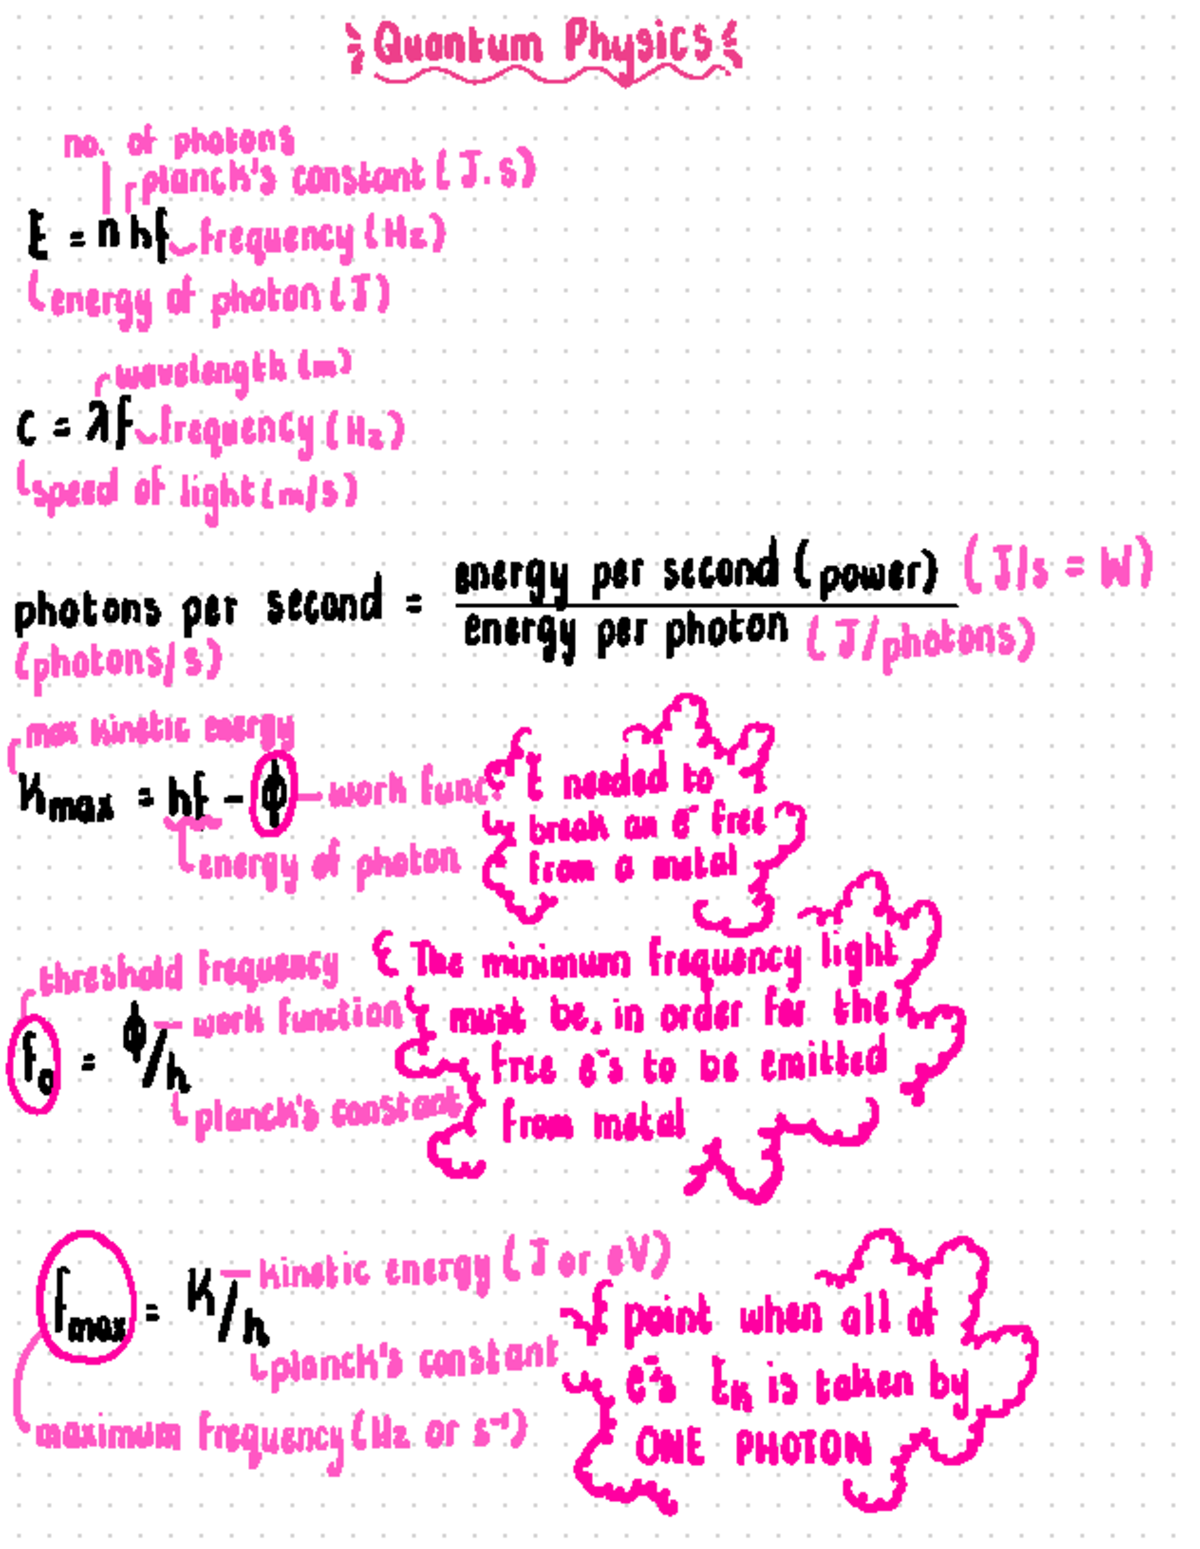 Quantum Physics
no. of photons
planck's constant (J.s)
E = nhf frequency (Hz)
energy of photon (J)
wavelength (m)
c = λf frequency (Hz)
speed of light (m/s)
photons per second = energy per second (power) / energy per photon (J/s = W)
(J/photons)
(photons/s)
max kinetic energy
Kmax = hf - ϕ work func
energy of photon
E needed to
break an e⁻ free
from a metal
threshold frequency
f₀ = ϕ/h work function
planck's constant
The minimum frequency light
must be, in order for the
free e⁻s to be emitted
from metal
fmax = K/h kinetic energy (J or eV)
planck's constant
maximum frequency (Hz or s⁻¹)
point when all of
e⁻s Eₖ is taken by
ONE PHOTON